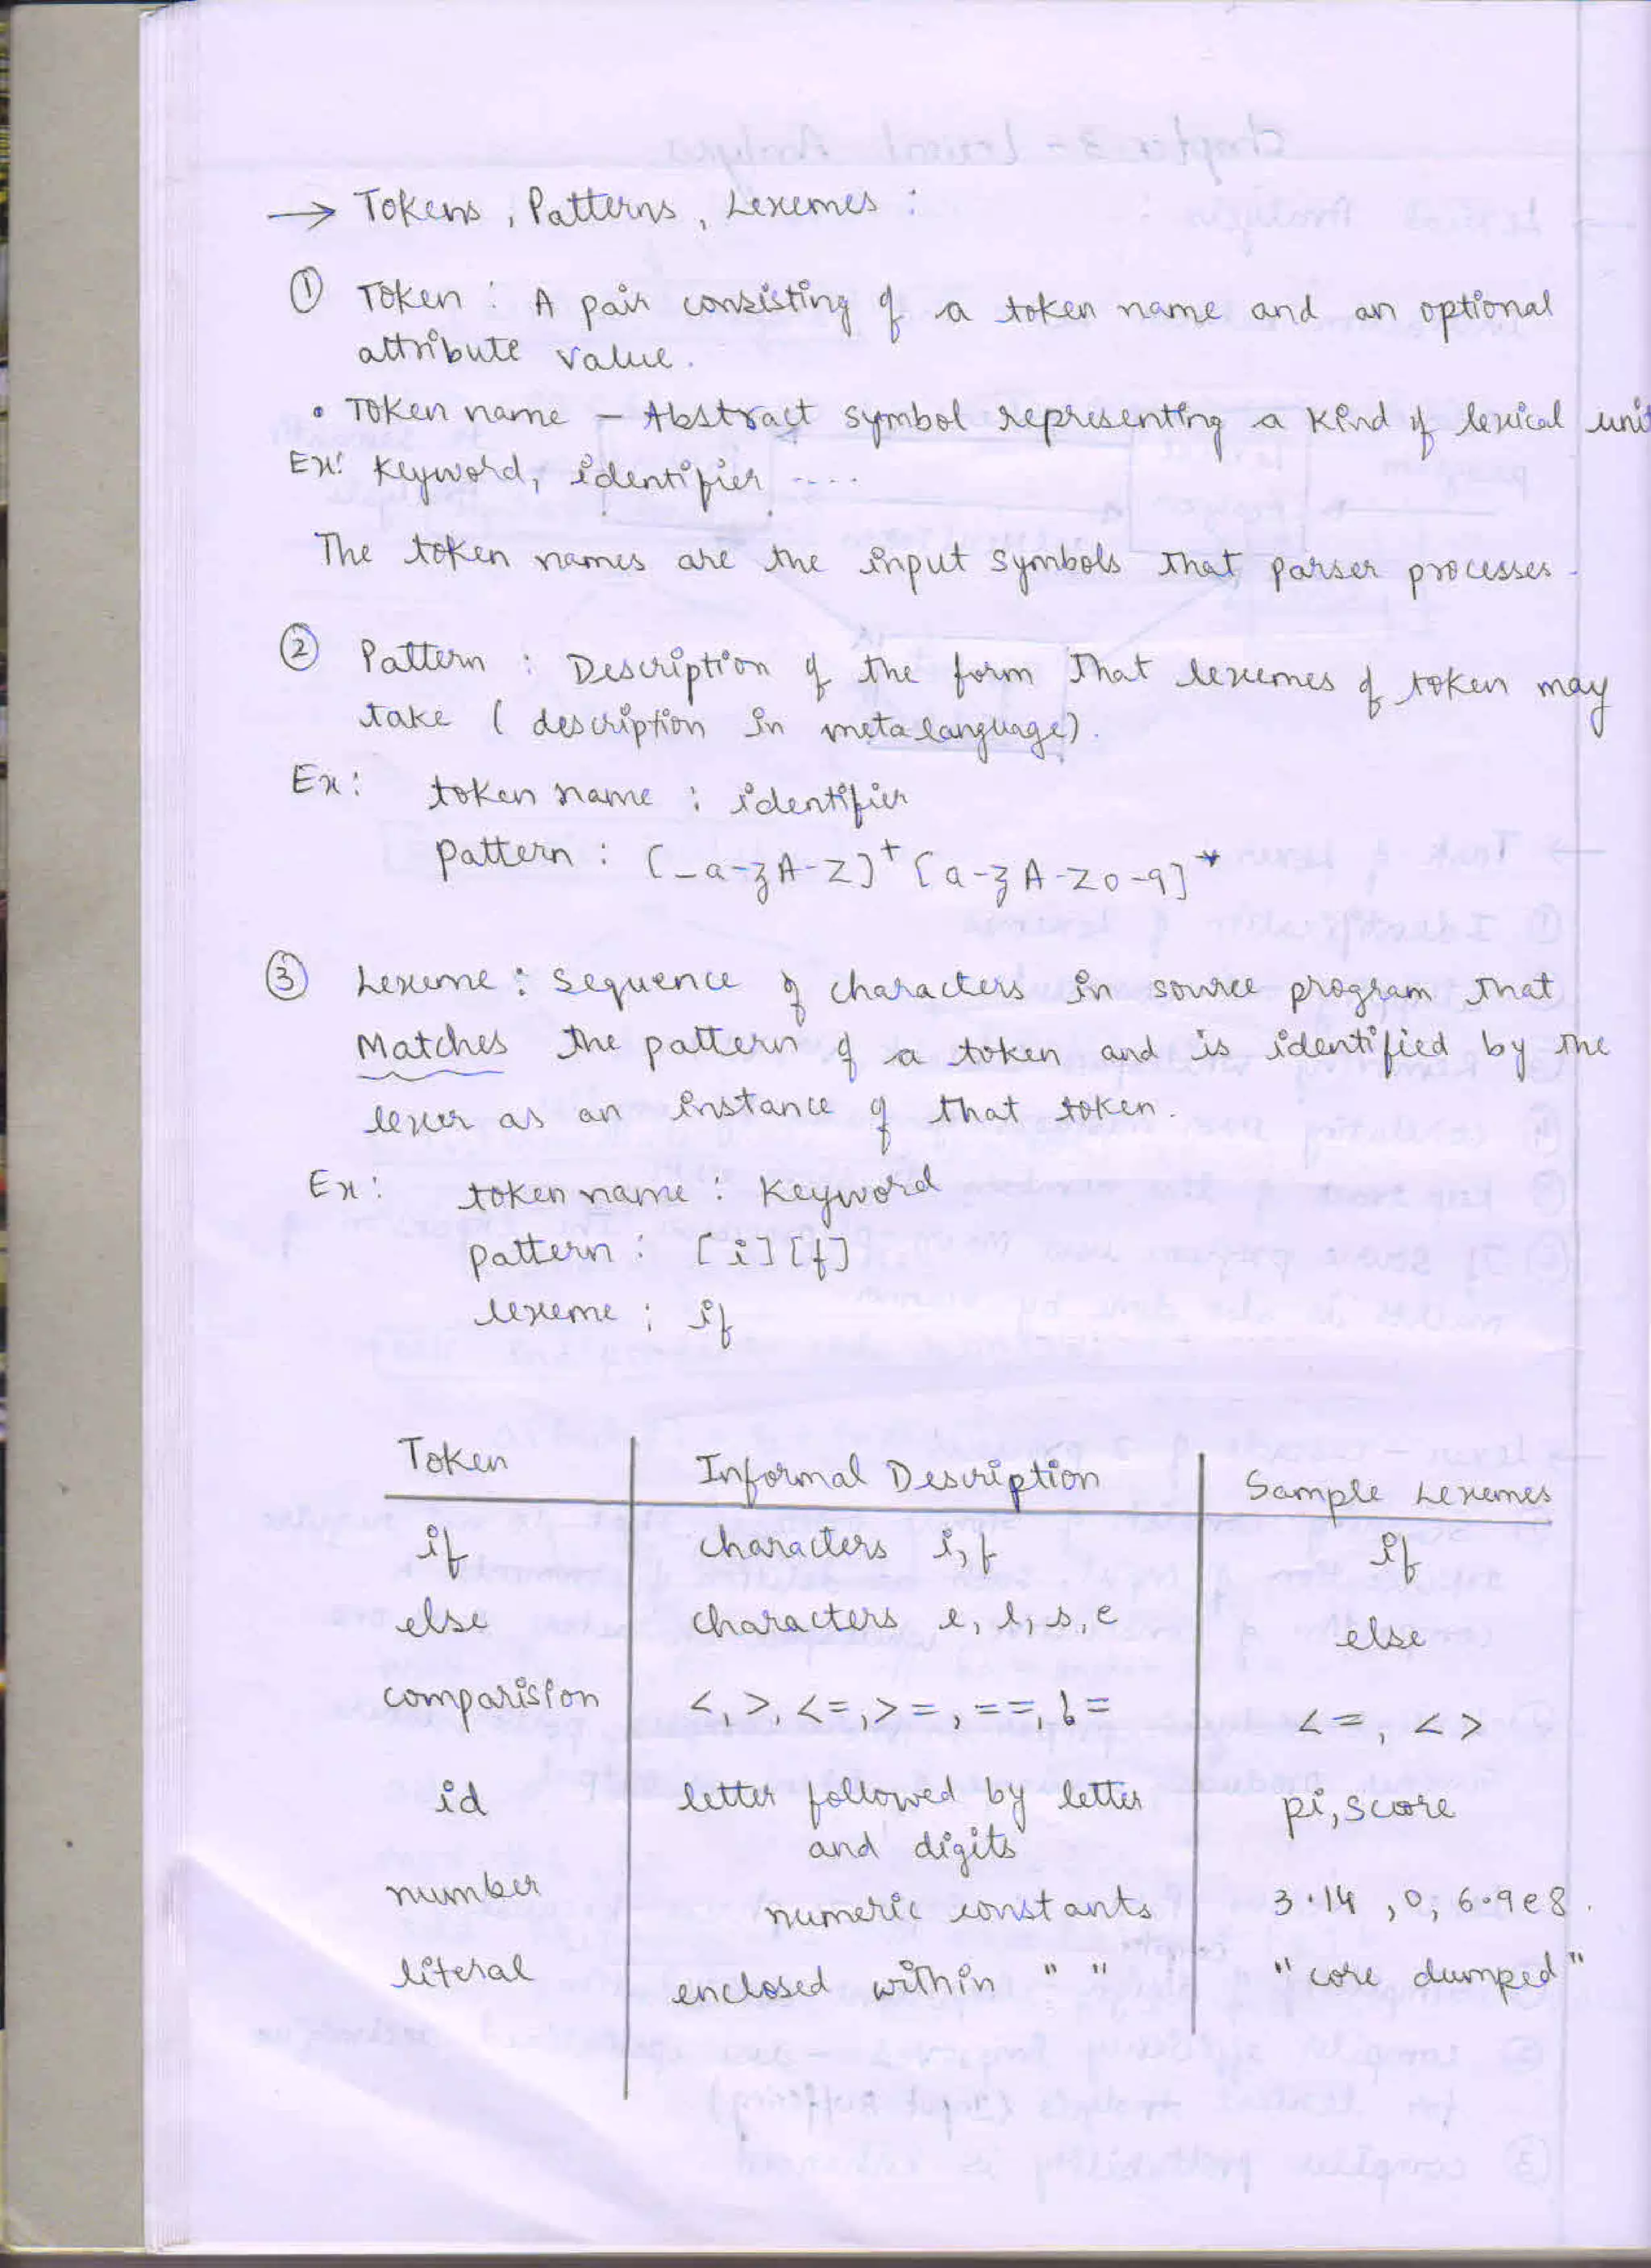 → Tokens, Patterns, Lexemes :
① Token : A pair consisting of a token name and an optional
attribute value.
• Token name – Abstract symbol representing a kind of lexical unit
Ex: Keyword, identifier ....
The token names are the input symbols that parser processes.
② Pattern : Description of the form that lexemes of token may
take ( description in metalanguage).
Ex: token name : identifier
pattern : [_a-zA-Z]+[a-zA-Z0-9]*
③ Lexeme : Sequence of characters in source program that
Matches the pattern of a token and is identified by the
lexer as an instance of that token.
Ex: token name : Keyword
pattern : [i][f]
lexeme : if
Token Informal Description Sample Lexemes
if characters i, f if
else characters e, l, s, e else
comparision <, >, <=, >=, ==, != <=, <>
id letter followed by letter pi, score
and digits
number numeric constants 3.14, 0, 6.9e8.
literal enclosed within " " "core dumped"